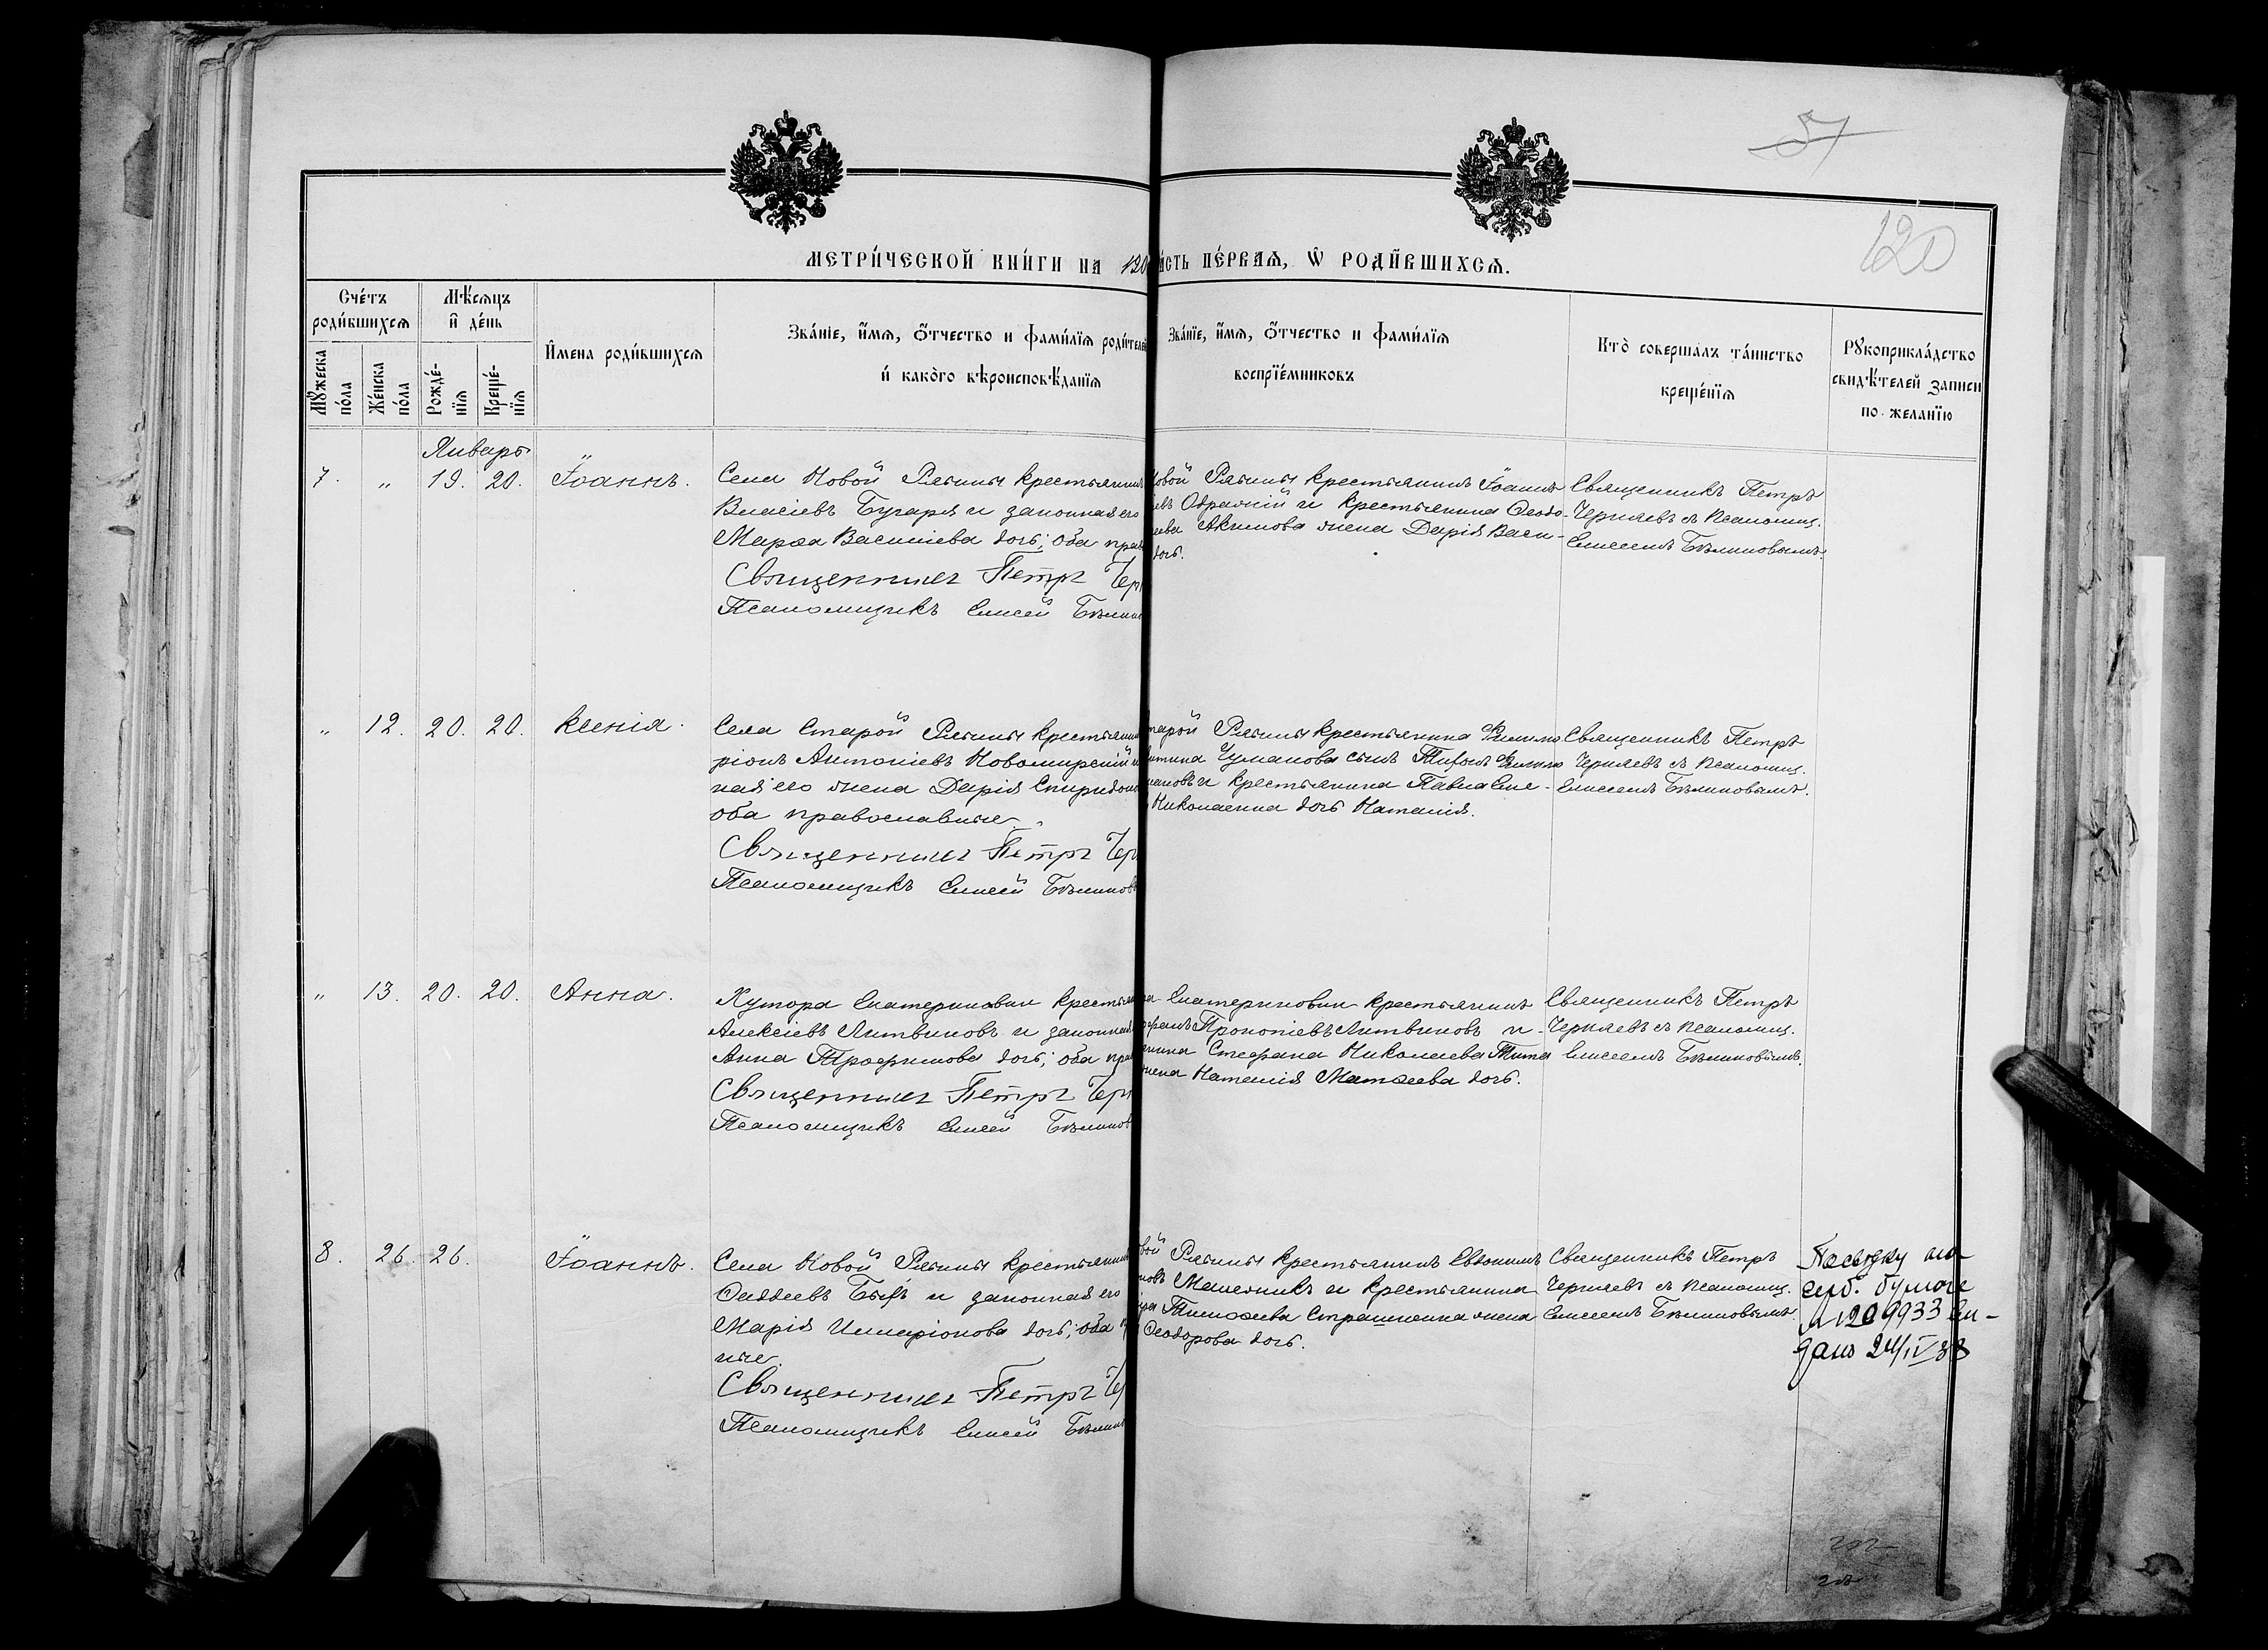 57
120
МЕТРИЧЕСКОЙ КНИГИ НА 190
ЧАСТЬ ПЕРВАЯ, Ѡ РОДИВШИХСЯ.
Счетъ родившихся
Мѣсяцъ и день
Мꙋжеска пола
Женска пола
Рожденїя
Крещенїя
Имена родившихся
Званіе, имя, отчество и фамилїя родителей
и какого вѣроисповѣданїя
Званїе, имя, отчество и фамилїя
воспрїемниковъ
Кто совершалъ таинство
крещенїя
Рꙋкоприкладство
свидѣтелей записи
по желанїю
Январь
7. " 19. 20. Іоаннъ.
Села Новой Рябины крестьянинъ
Власіевъ Бугаря и законная его
Марѳа Василіева дочь; оба прав
Священникъ Петръ Чер
Псаломщикъ Елисей Бѣлинов
Новой Рябины крестьянинъ Іоаннъ
евъ Ображій и крестьянина Ѳеодо-
ева Акимова жена Дарія Васи-
дочь.
Священникъ Петръ
Черняевъ съ псаломщ.
Елисеемъ Бѣлиновымъ.
" 12. 20. 20. Ксенія.
Села Старой Рябины крестьянин
ріонъ Антоніевъ Новомирскій и
ная его жена Дарія Спиридоно
оба православные.
Священникъ Петръ Чер
Псаломщикъ Елисей Бѣлиновъ
тарой Рябины крестьянина Филип
Чуманова сынъ
и крестьянина Павла
Николаенка дочь Наталія.
Священникъ Петръ
Черняевъ съ псаломщ.
Елисеемъ Бѣлиновымъ.
" 13. 20. 20. Анна.
Хутора Екатериновки крестьян
Алексіевъ Литвиновъ и законная
Анна Трофимова дочь; оба пра
Священникъ Петръ Чер
Псаломщикъ Елисей Бѣлинов
ра Екатериновки крестьянинъ
Прокопіевъ Литвиновъ и
янина Стефана Николаева Тита
жена Наталія Матѳеева дочь.
Священникъ Петръ
Черняевъ съ псаломщ.
Елисеемъ Бѣлиновымъ.
8. 26. 26. Іоаннъ.
Села Новой Рябины крестьянинъ
Ѳаддеевъ и законная его
Марія Илларіонова дочь; оба п
ные.
Священникъ Петръ Че
Псаломщикъ Елисей Бѣлин
вой Рябины крестьянинъ Евѳимій
новъ и крестьянина
Тимоѳеева жена
Ѳеодорова дочь.
Священникъ Петръ
Черняевъ съ псаломщ.
Елисеемъ Бѣлиновымъ.
на
герб. бумаге
№ 1209933 ви-
дано 24/IV 38